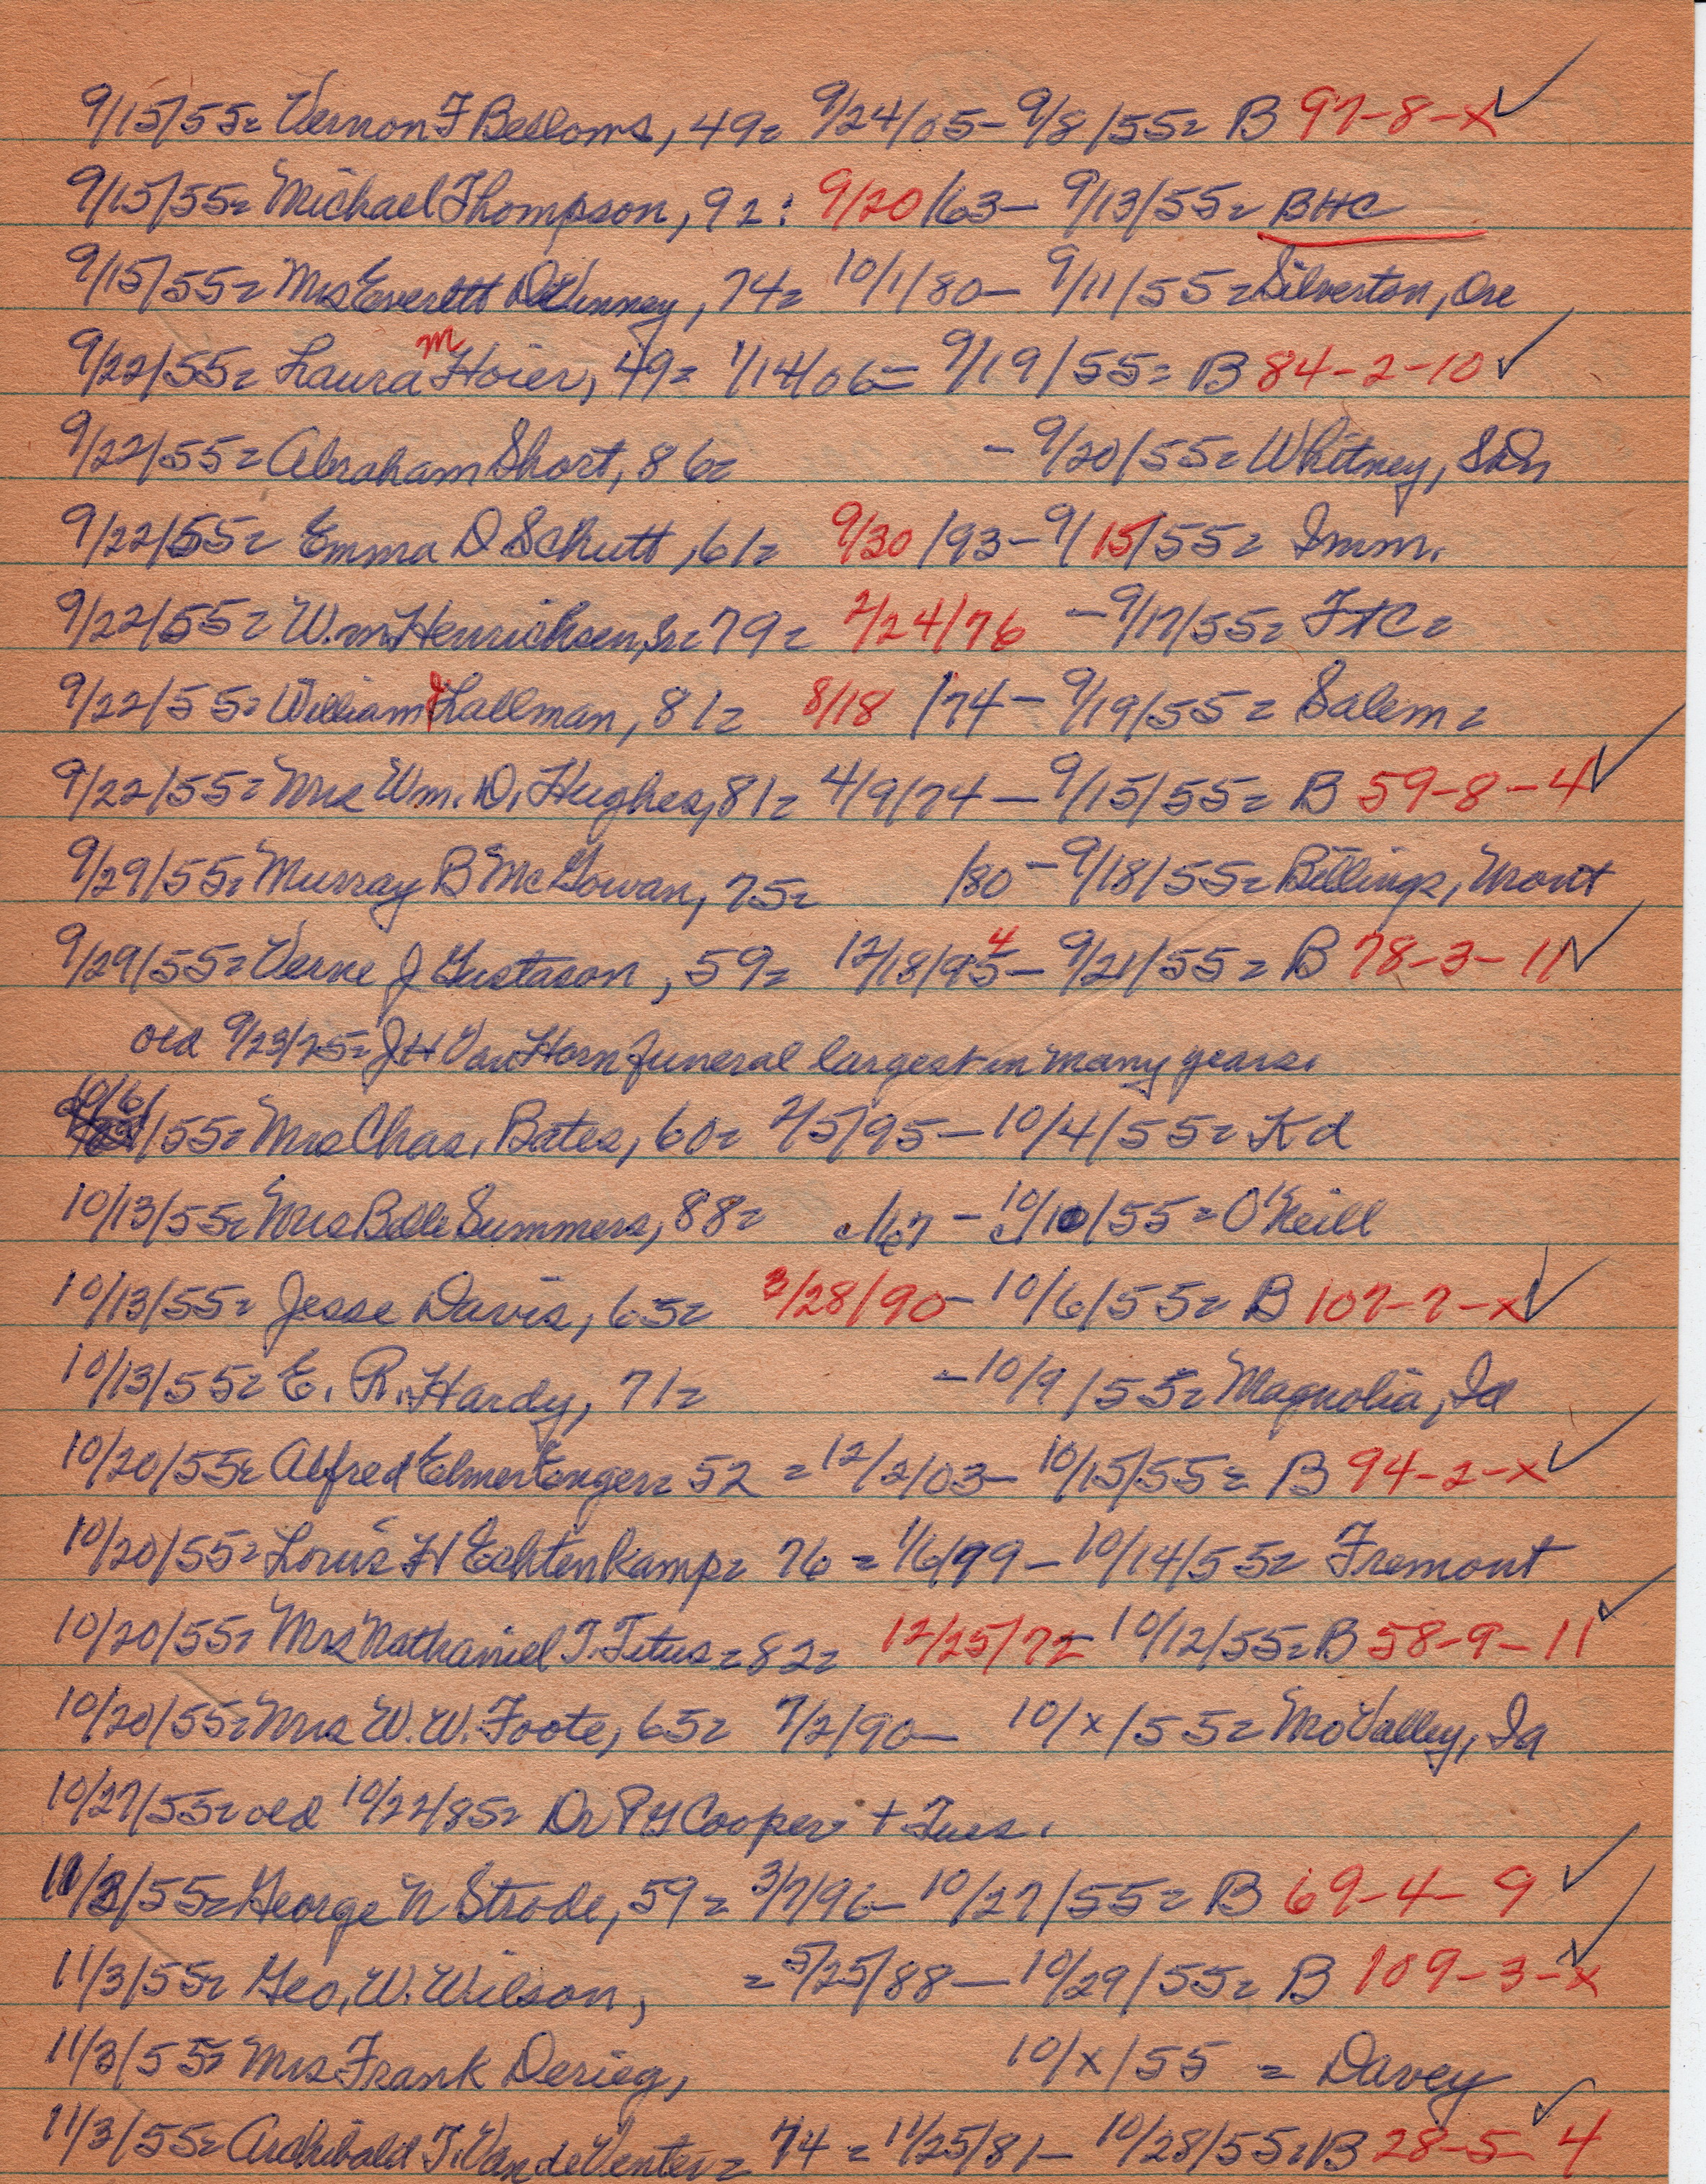 9/15/55= Vernon F Bellows, 49= 9/24/05- 9/8/55= B 97-8-x ✓
9/15/55= Michael Thompson, 92: 9/20/63- 9/13/55= BHC
9/15/55= Mrs Everett DeKinney, 74= 10/1/80- 9/11/55= Silverton, Ore
9/22/55= Laura M Hoier, 49= 1/14/06= 9/19/55= B 84-2-10 ✓
9/22/55= Abraham Short, 86= - 9/20/55= Whitney,
9/22/55= Emma D Schutt, 61= 9/30/93- 9/15/55= Imm.
9/22/55= W.m Henrichsen, Sr= 79= 2/24/76 - 9/17/55= FtC=
9/22/55= William Lallman, 81= 8/18/74- 9/19/55= Salem=
9/22/55= Mrs Wm. D. Hughes, 81= 4/9/74- 9/15/55= B 59-8-4 ✓
9/29/55= Murray B McGowan, 75= /80- 9/18/55= Billings, Mont
9/29/55= Verne J Gustason, 59= 12/18/95 4 - 9/21/55= B 78-3-11 ✓
old 9/23/25= JH Van Horn funeral largest in many years.
10/6/55= Mrs Chas. Bates, 60= 2/5/95- 10/4/55= Kd
10/13/55= Mrs Belle Summers, 88= c/67- 10/10/55= O'Neill
10/13/55= Jesse Davis, 65= 3/28/90- 10/6/55= B 107-7-x ✓
10/13/55= E. R. Hardy, 71= - 10/9/55= Magnolia, Ia
10/20/55= Alfred Elmer Enger= 52 = 12/2/03- 10/15/55= B 94-2-x ✓
10/20/55= Louis H Echtenkamp= 76 = 1/6/99- 10/14/55= Fremont
10/20/55= Mrs Nathaniel T. Titus= 82= 12/25/72- 10/12/55= B 58-9-11 ✓
10/20/55= Mrs W.W. Foote, 65= 7/2/90- 10/x/55= Mo Valley, Ia
10/27/55= old 10/22/85= Dr PG Cooper + Tues.
11/3/55= George N Strode, 59= 3/7/96- 10/27/55= B 69-4-9 ✓
11/3/55= Geo. W. Wilson, = 5/25/88- 10/29/55= B 109-3-x ✓
11/3/55= Mrs Frank Derieg, 10/x/55 = Davey
11/3/55= Archibald T. VandeVenter= 74= 11/25/81- 10/28/55= B 28-5-4 ✓